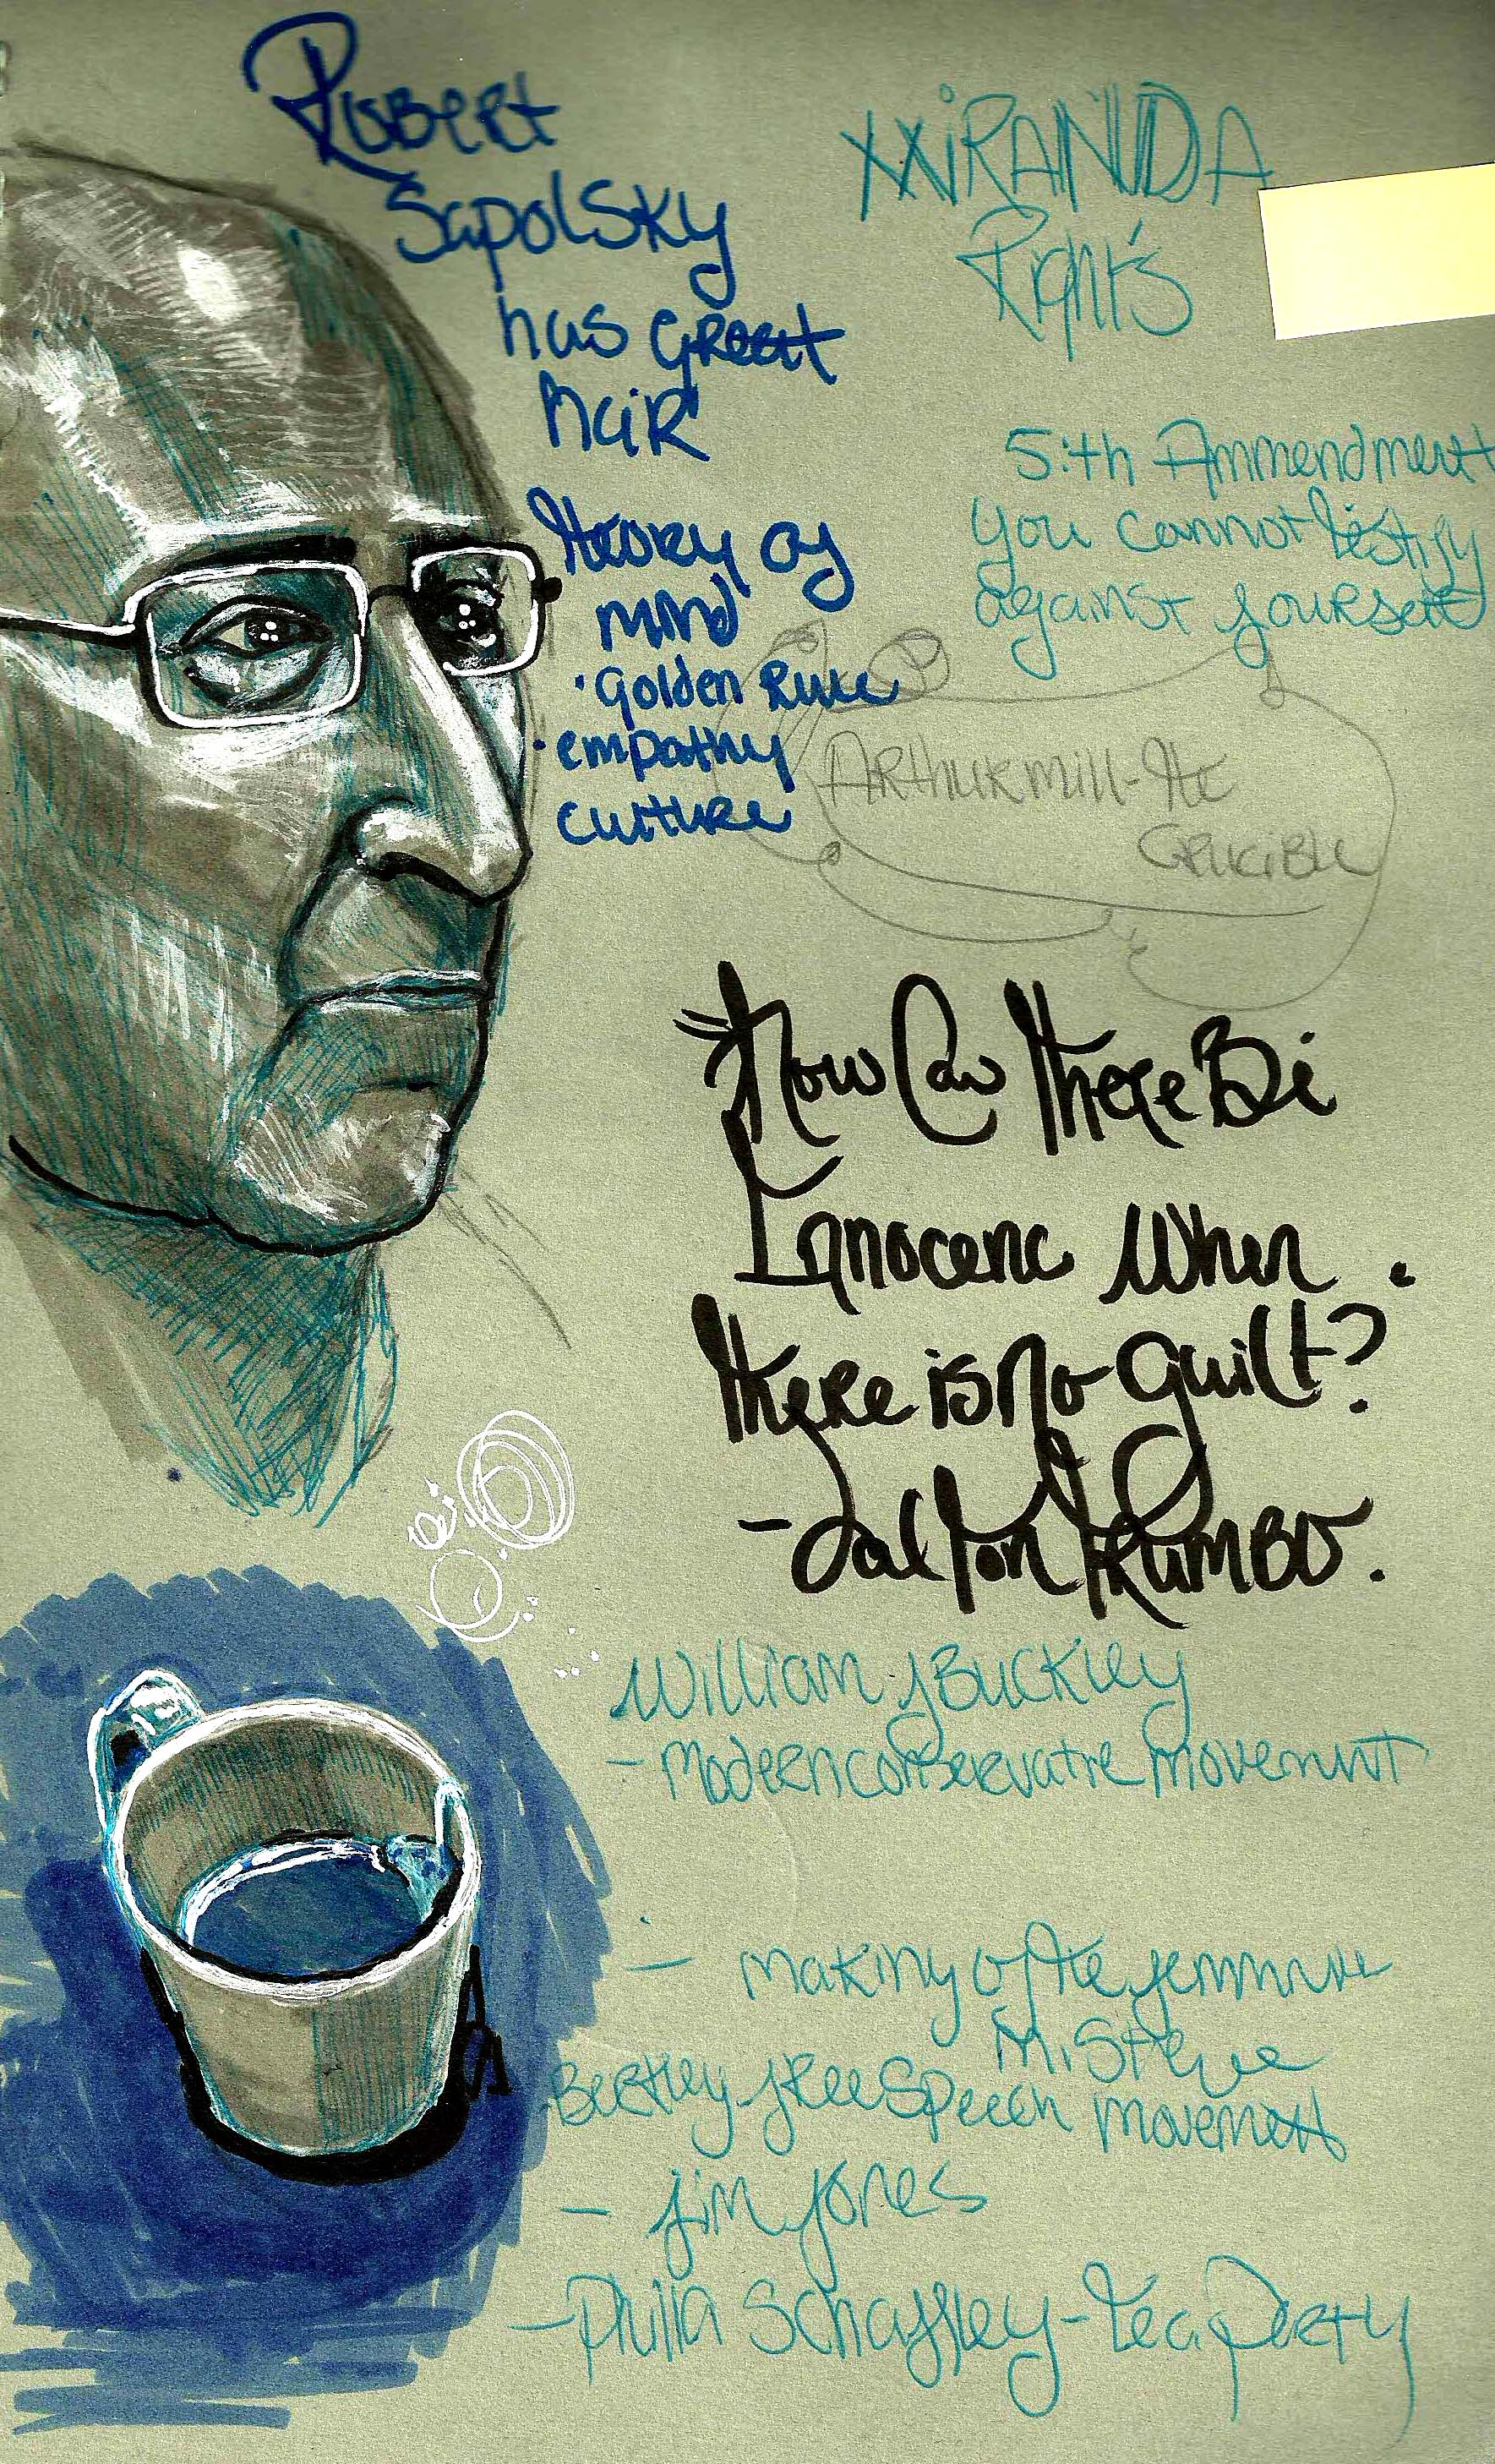 Robert
Sapolsky
has Great
hair
theory of
mind
• Golden Rule
• empathy
culture
MiRANDA
Right's
5:th Ammendment
you cannot testify
against yourself
ARthur mill-the
CRuciBle
"How Can there Be
Ignocenc when
there is no guilt?
- dalton trumbo.
William J Buckley
- Modern conservative movement
- making of the feminine
mistique
Berkley free speech movement
- Jim Jones
- Schaffley - tea party